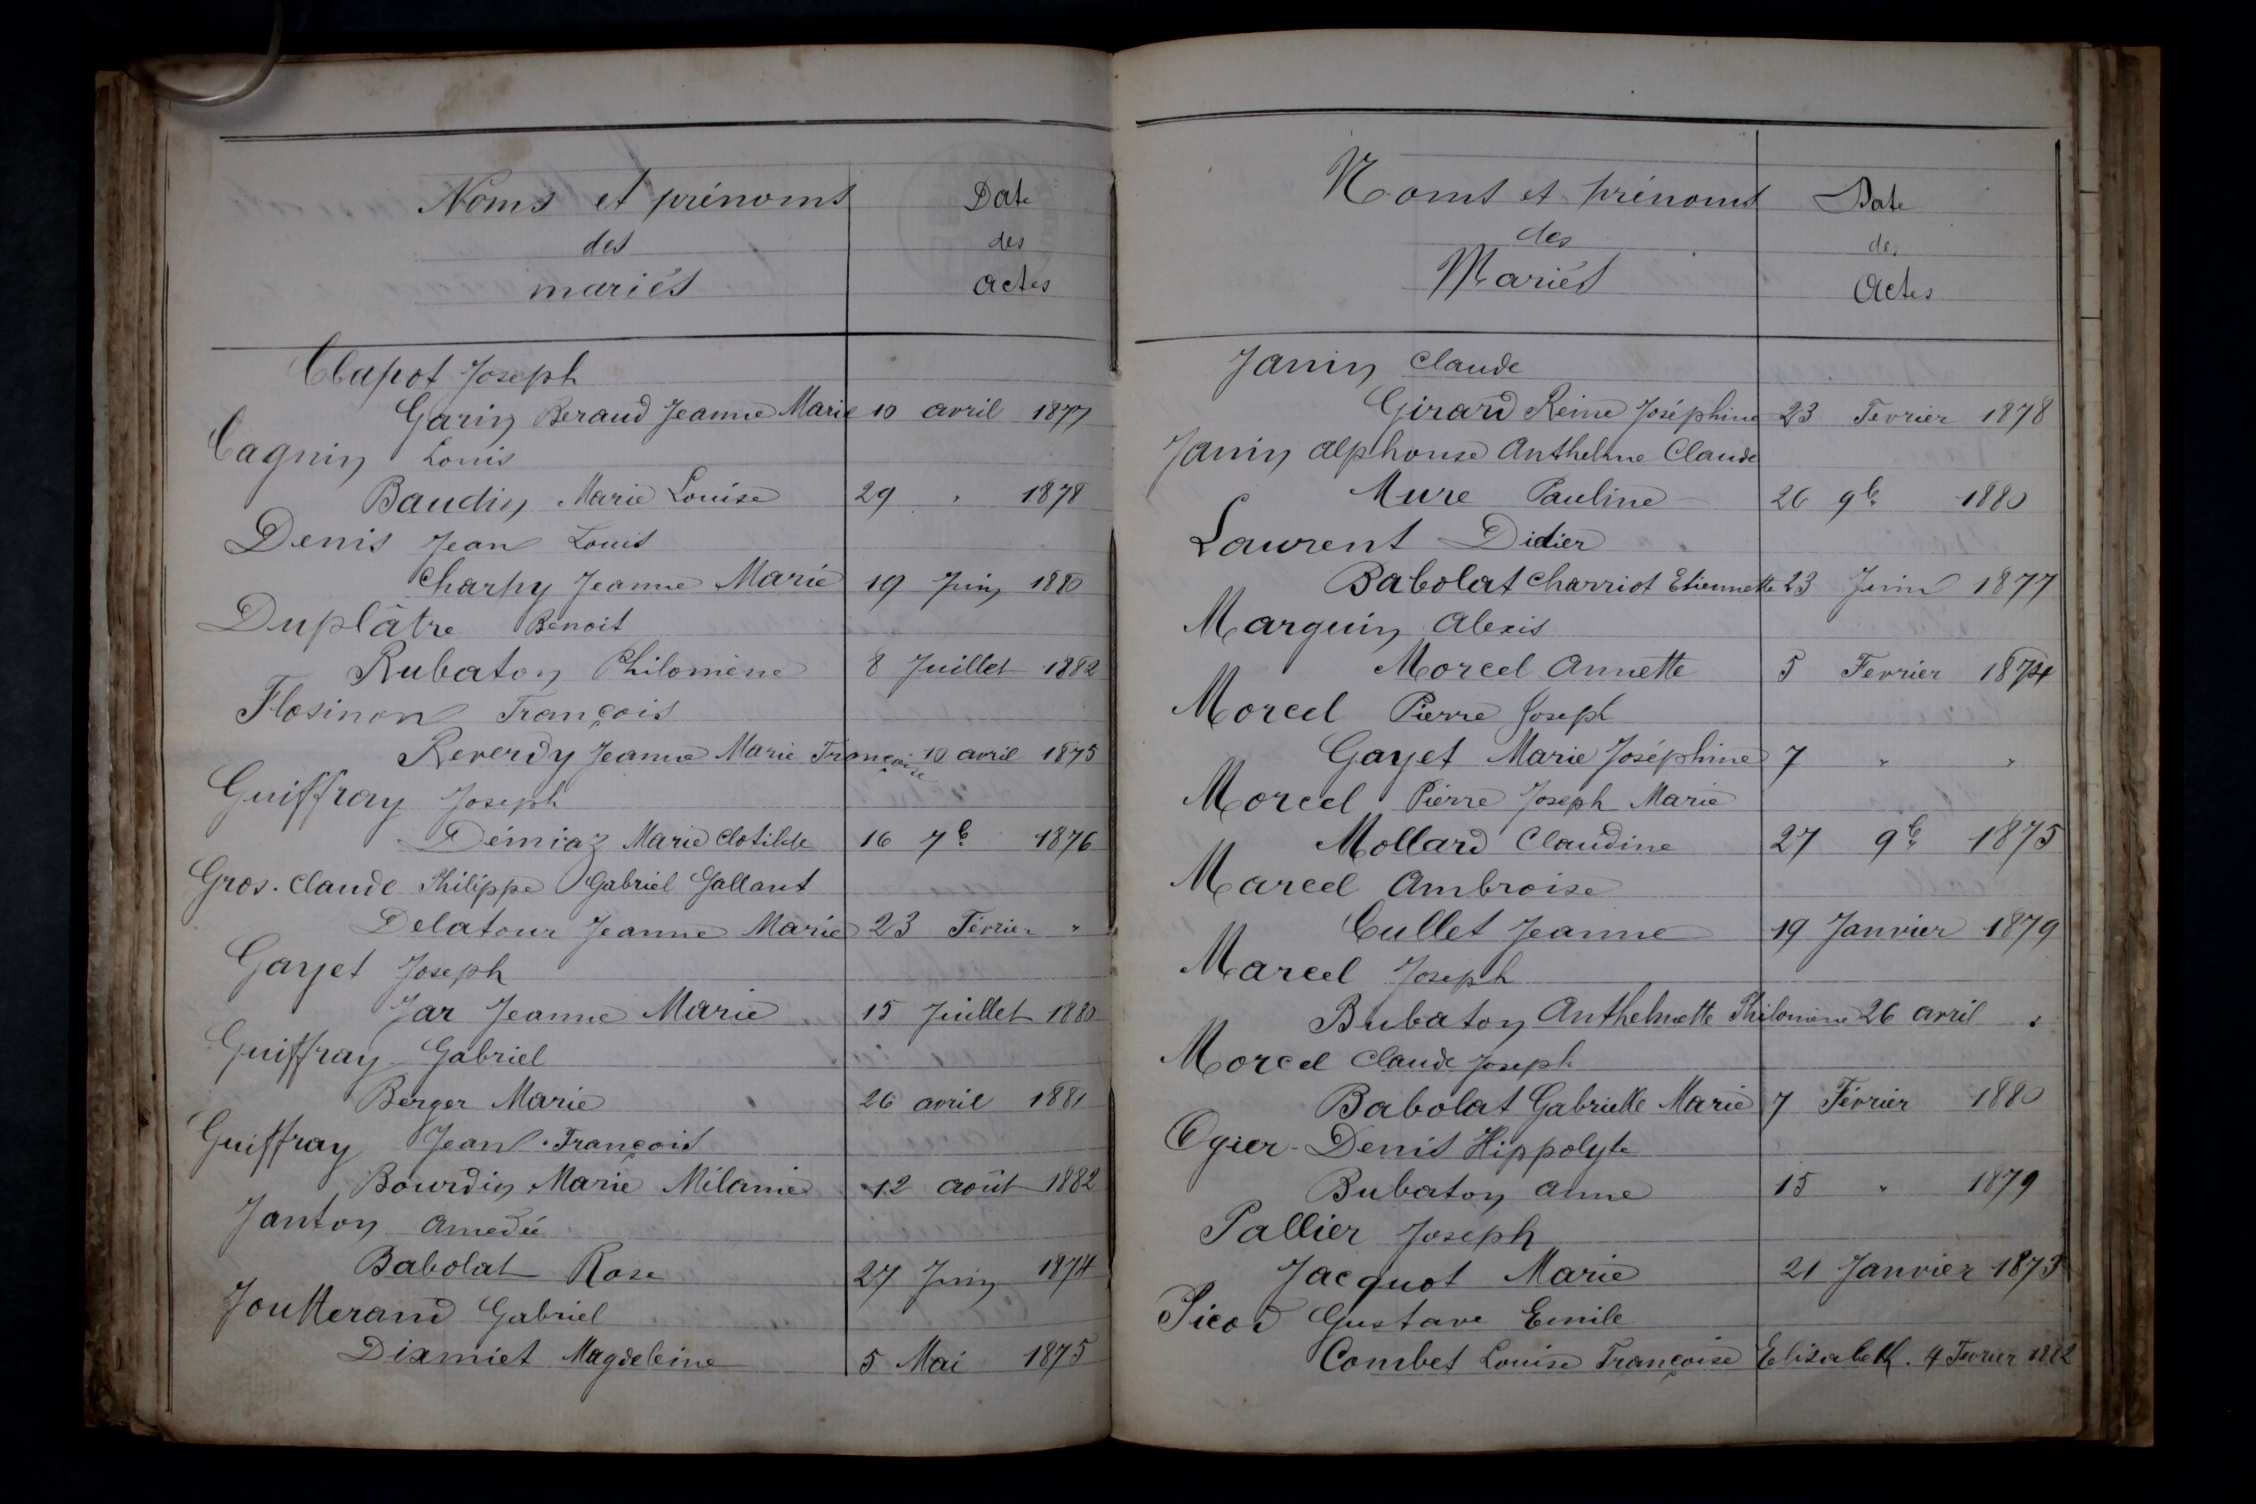 Noms et prénoms
des
mariés
Date
des
Actes
Clapot Joseph
Garin Beraud Jeanne Marie 10 avril 1877
Cagnin Louis
Baudin Marie Louise 29 " 1878
Denis Jean Louis
Charpy Jeanne Marie 19 Juin 1880
Duplâtre Benoit
Rubaton Philomène 8 Juillet 1882
Flosinon François
Reverdy Jeanne Marie Françoise 10 avril 1875
Guiffray Joseph
Démiaz Marie Clotilde 16 7b 1876
Gros-Claude Philippe Gabriel Gallant
Delatour Jeanne Marie 23 Février "
Gayet Joseph
Jar Jeanne Marie 15 Juillet 1880
Guiffray Gabriel
Berger Marie 26 avril 1881
Guiffray Jean-François
Bourdin Marie Mélanie 12 août 1882
Janton Amedée
Babolat Rose 27 Juin 1874
Joutterand Gabriel
Dixmiet Magdeleine 5 Mai 1875
Noms et prénoms
des
Mariés
Date
des
Actes
Janin Claude
Girard Reine Joséphine 23 Fevrier 1878
Janin Alphonse Anthelme Claude
Mure Pauline 26 9b 1880
Laurent Didier
Babolat Charriot Etiennette 23 Juin 1877
Marguin Alexis
Morcel Annette 5 Fevrier 1874
Morcel Pierre Joseph
Gayet Marie Joséphine 7 " "
Morcel Pierre Joseph Marie
Mollard Claudine 27 9b 1875
Marcel Ambroise
Cullet Jeanne 19 Janvier 1879
Marcel Joseph
Bubaton Anthelmette Philomène 26 avril "
Morcel Claude Joseph
Babolat Gabrielle Marie 7 Février 1880
Ogier-Denis Hippolyte
Bubaton Anne 15 " 1879
Pallier Joseph
Jacquot Marie 21 Janvier 1873
Picod Gustave Emile
Combet Louise Françoise Elisabeth. 4 Fevrier 1882